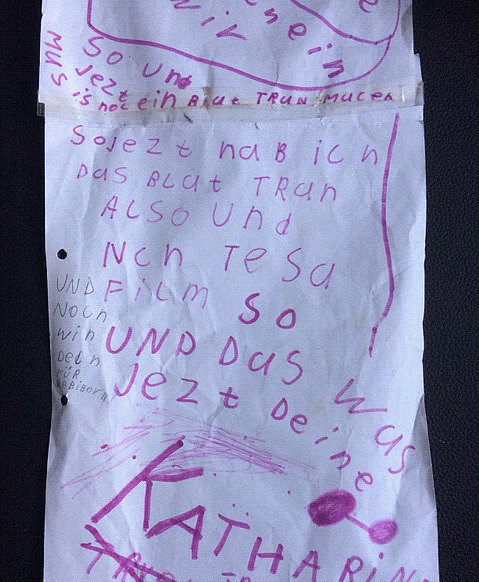 wir
sein
So und
jezt
MUS is noc ein BLAt TRAN mucen
SoJEZt haB ich
DAS BLAt TRAn
ALSO Und
NCh TeSa
FiLm SO
UND DAS WAS
JEZt DEiNe
UND
NOCh
win
DELn
FÜR
KATHARiN